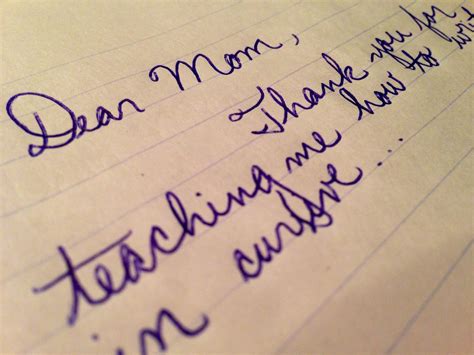 Dear Mom,
Thank you for
teaching me how to write
in cursive...